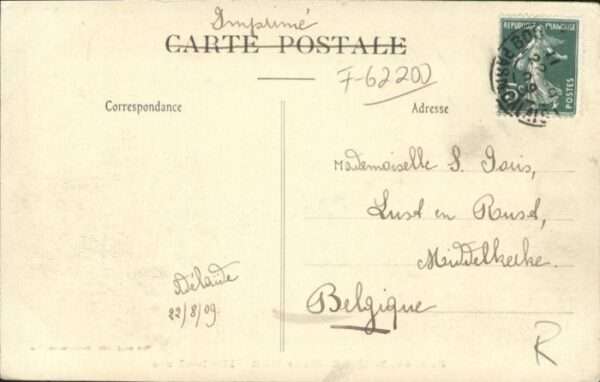 Imprimé
CARTE POSTALE
F-62200
Correspondance
Adresse
REPUBLIQUE FRANÇAISE
5
POSTES
Mademoiselle S. Joris,
Lust en Rust,
Middelkerke.
Belgique
Délaïde
22/8/09
R